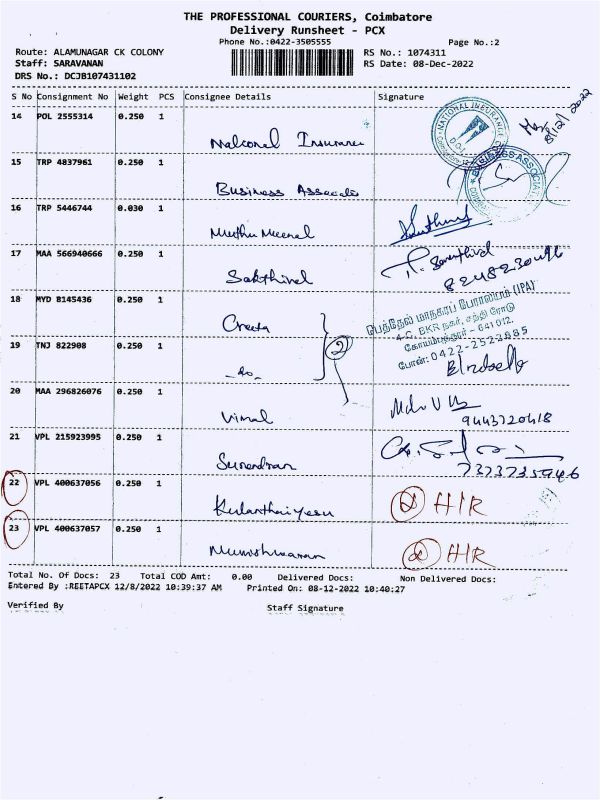 THE PROFESSIONAL COURIERS, Coimbatore
Delivery Runsheet - PCX
Phone No.:0422-3505555
Page No.:2
Route: ALAMUNAGAR CK COLONY
RS No.: 1074311
Staff: SARAVANAN
RS Date: 08-Dec-2022
DRS No.: DCJB107431102
S No Consignment No Weight PCS Consignee Details Signature
14 POL 2555314 0.250 1
National Insurance
8/12/2022
NATIONAL INSURANCE
15 TRP 4837961 0.250 1
Business Associates
BUSINESS ASSOCIA
16 TRP 5446744 0.030 1
Muthu Meenal
17 MAA 566940666 0.250 1
Sakthivel
18 MYD 8145436 0.250 1
Greeta
2
பெத்தேல் மாநகரப் பேராலயம் (IPA)
4-C, EKR நகர், சத்தி ரோடு
கோயம்புத்தூர் - 641 012.
போன்: 0422-2522885
19 TNJ 822908 0.250 1
- do -
20 MAA 296826076 0.250 1
Vimal
9443720418
21 VPL 215923995 0.250 1
Surendran
7373735946
22 VPL 400637056 0.250 1
Kulanthaiyesu
HIR
23 VPL 400637057 0.250 1
Munishwaran
HIR
Total No. Of Docs: 23 Total COD Amt: 0.00 Delivered Docs: Non Delivered Docs:
Entered By :REETAPCX 12/8/2022 10:39:37 AM Printed On: 08-12-2022 10:40:27
Verified By Staff Signature